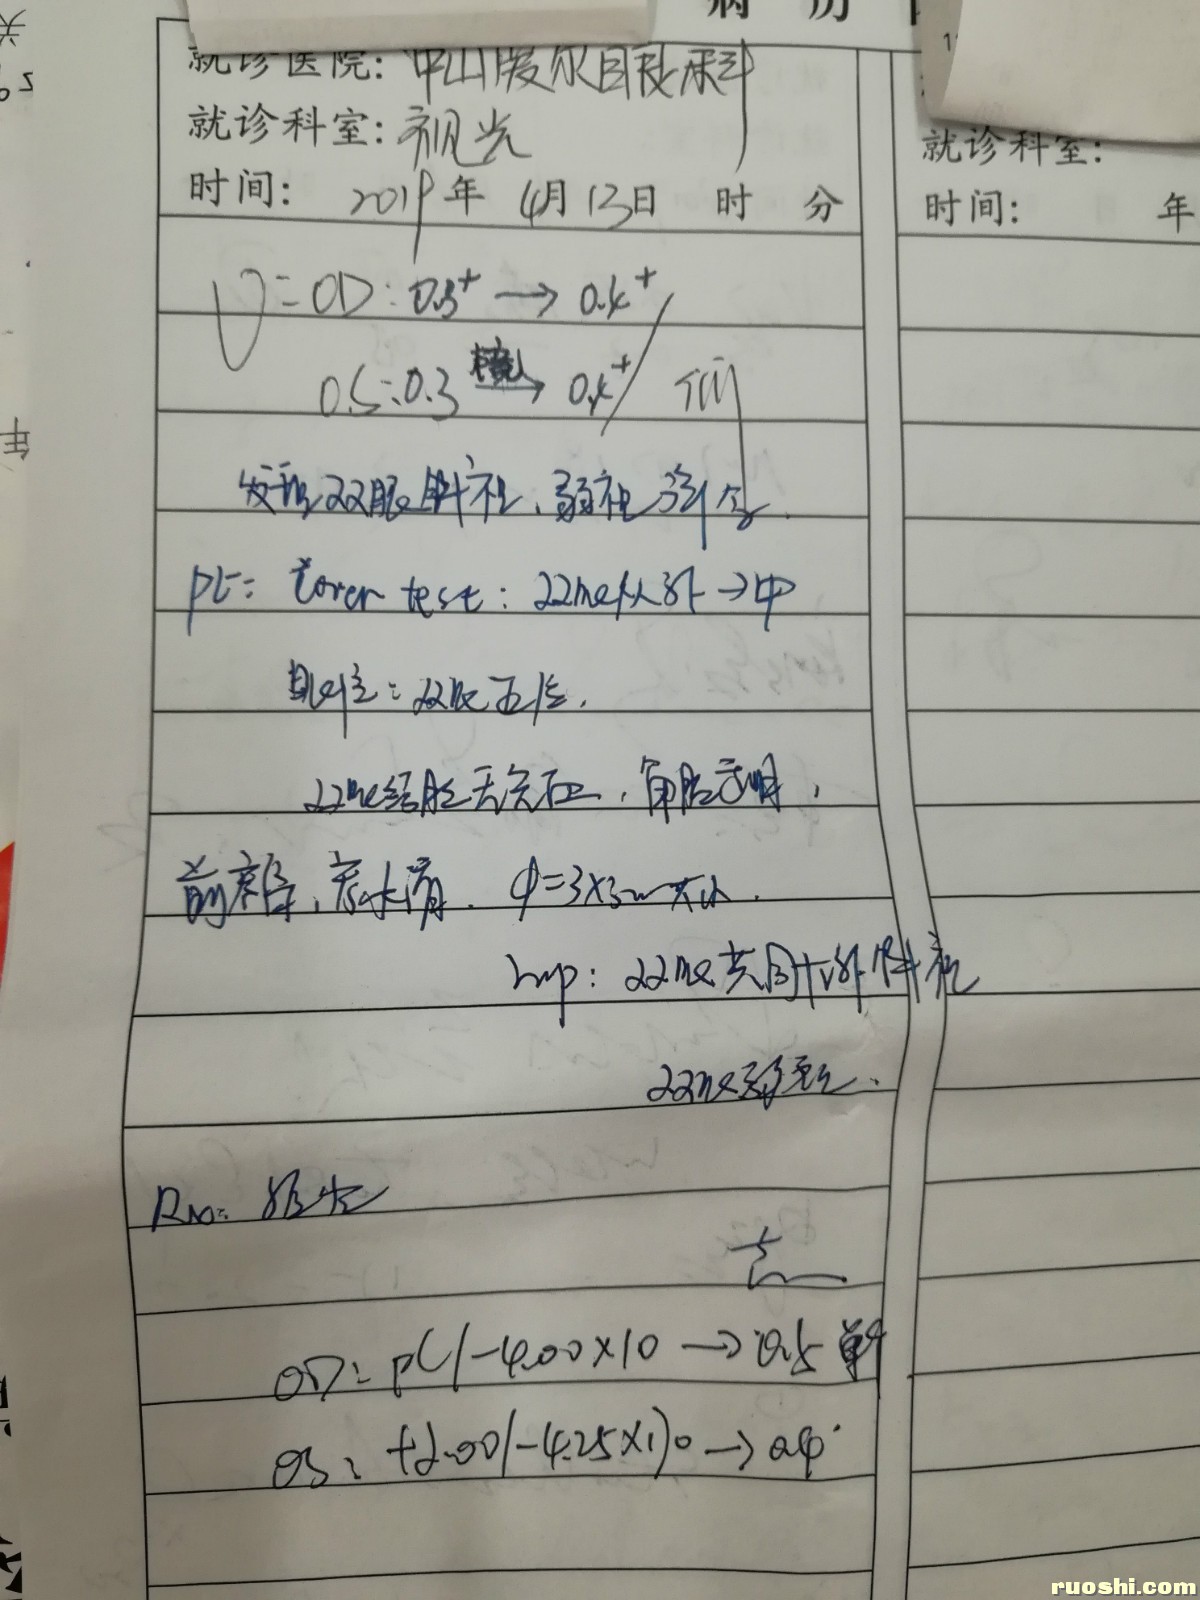 病 历
就诊医院: 中山爱尔眼科
就诊科室: 视光
时间: 2019年 4月13日 时 分
就诊科室:
时间: 年
V=OD: 0.3⁺ → 0.4⁺
OS: 0.3 → 0.4⁺
发现双眼斜视、弱视
PE: Cover test: 双眼从外→中
眼位: 双眼正位.
双眼结膜无充血, 角膜透明,
前房, 房水清. φ=3×3mm大小.
Imp: 双眼共同性外斜视
双眼弱视.
OD: pl/-4.00×10 → 0.5
OS: +2.00/-4.25×170 → 0.4
ruoshi.com